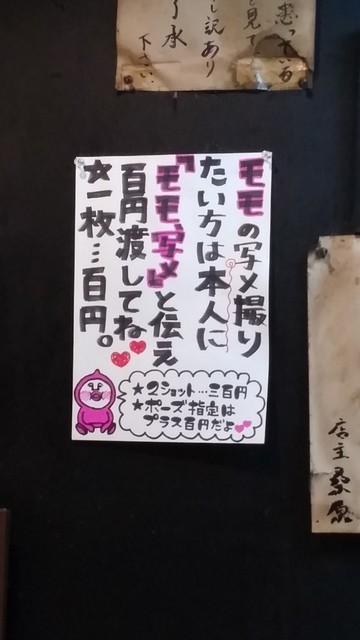 モモの写メ撮り
たい方は本人に
『モモ、写メ』と伝え
百円渡してね
★一枚…百円。
★2ショット…三百円
★ポーズ指定は
プラス百円だよ
店主桑原
し記あり
了承
下さい